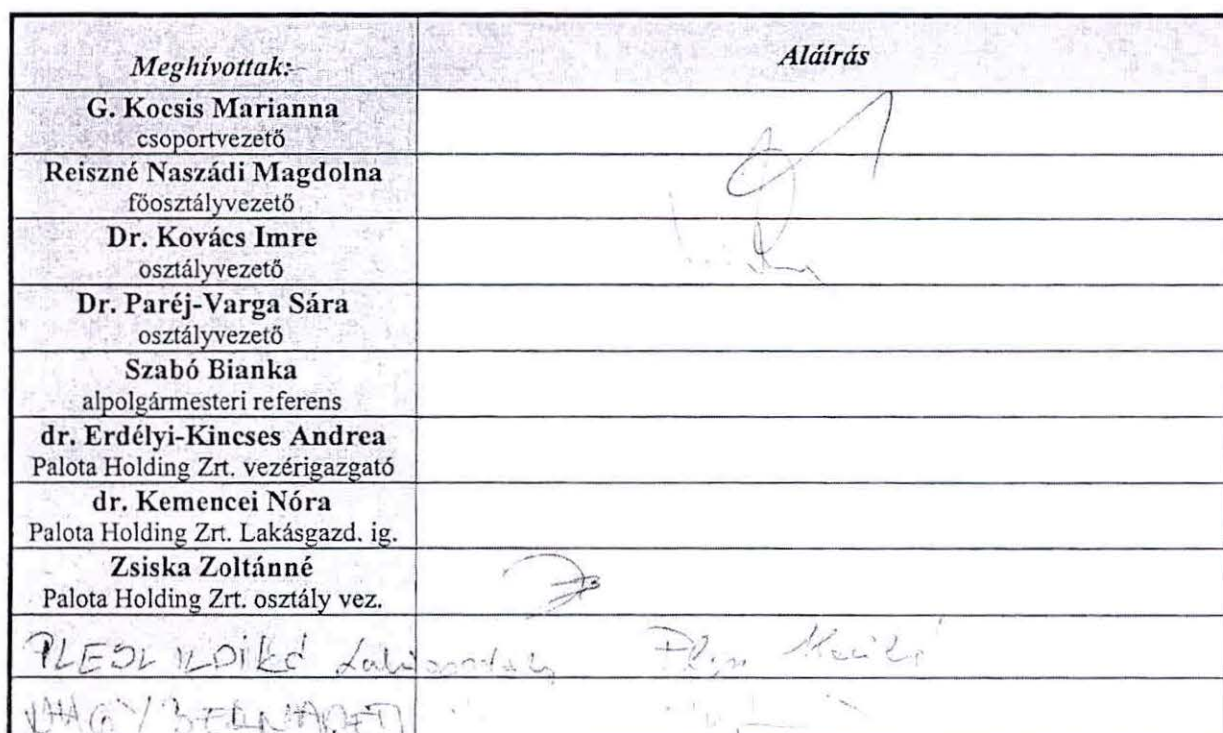 Meghívottak:
Aláírás
G. Kocsis Marianna
csoportvezető
Reiszné Naszádi Magdolna
főosztályvezető
Dr. Kovács Imre
osztályvezető
Dr. Paréj-Varga Sára
osztályvezető
Szabó Bianka
alpolgármesteri referens
dr. Erdélyi-Kincses Andrea
Palota Holding Zrt. vezérigazgató
dr. Kemencei Nóra
Palota Holding Zrt. Lakásgazd. ig.
Zsiska Zoltánné
Palota Holding Zrt. osztály vez.
ILDIKÓ
NAGY BERNADETT